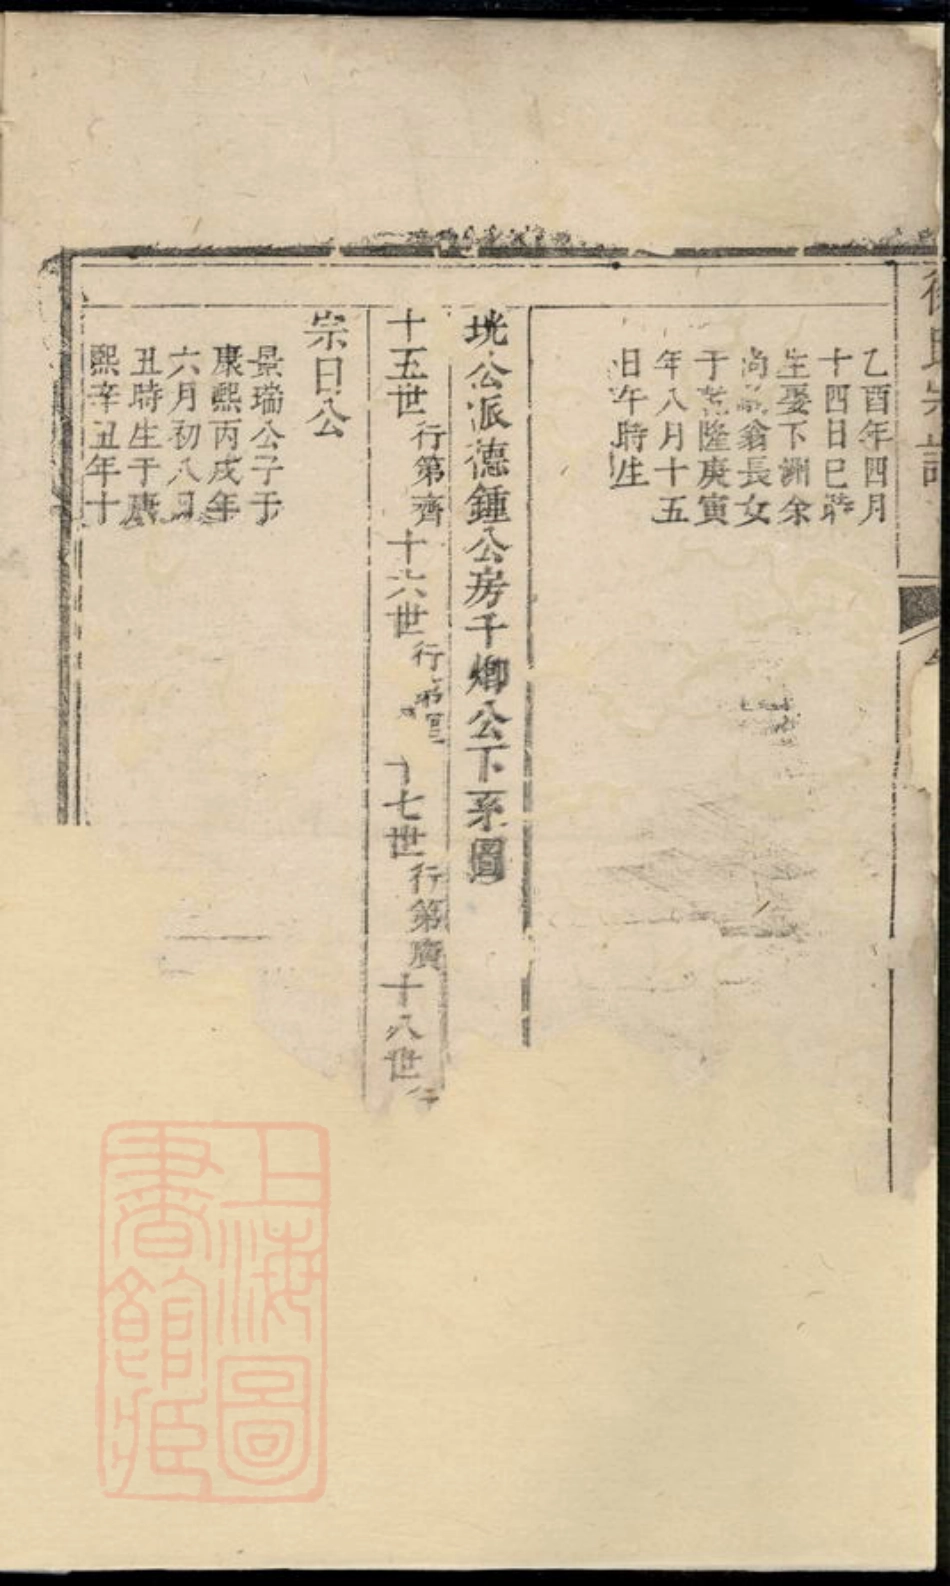 氏宗譜
乙酉年四月
十四日巳時
生娶下洲余
尚 翁長女
于乾隆庚寅
年八月十五
日午時生
珖公派德鍾公房千卿公下系圖
十五世行第齊十六世行第 十七世行第廣十八世行
宗日公
景瑞公子于
康熙丙戌年
六月初八日
丑時生于康
熙辛丑年十
上海圖
書館藏